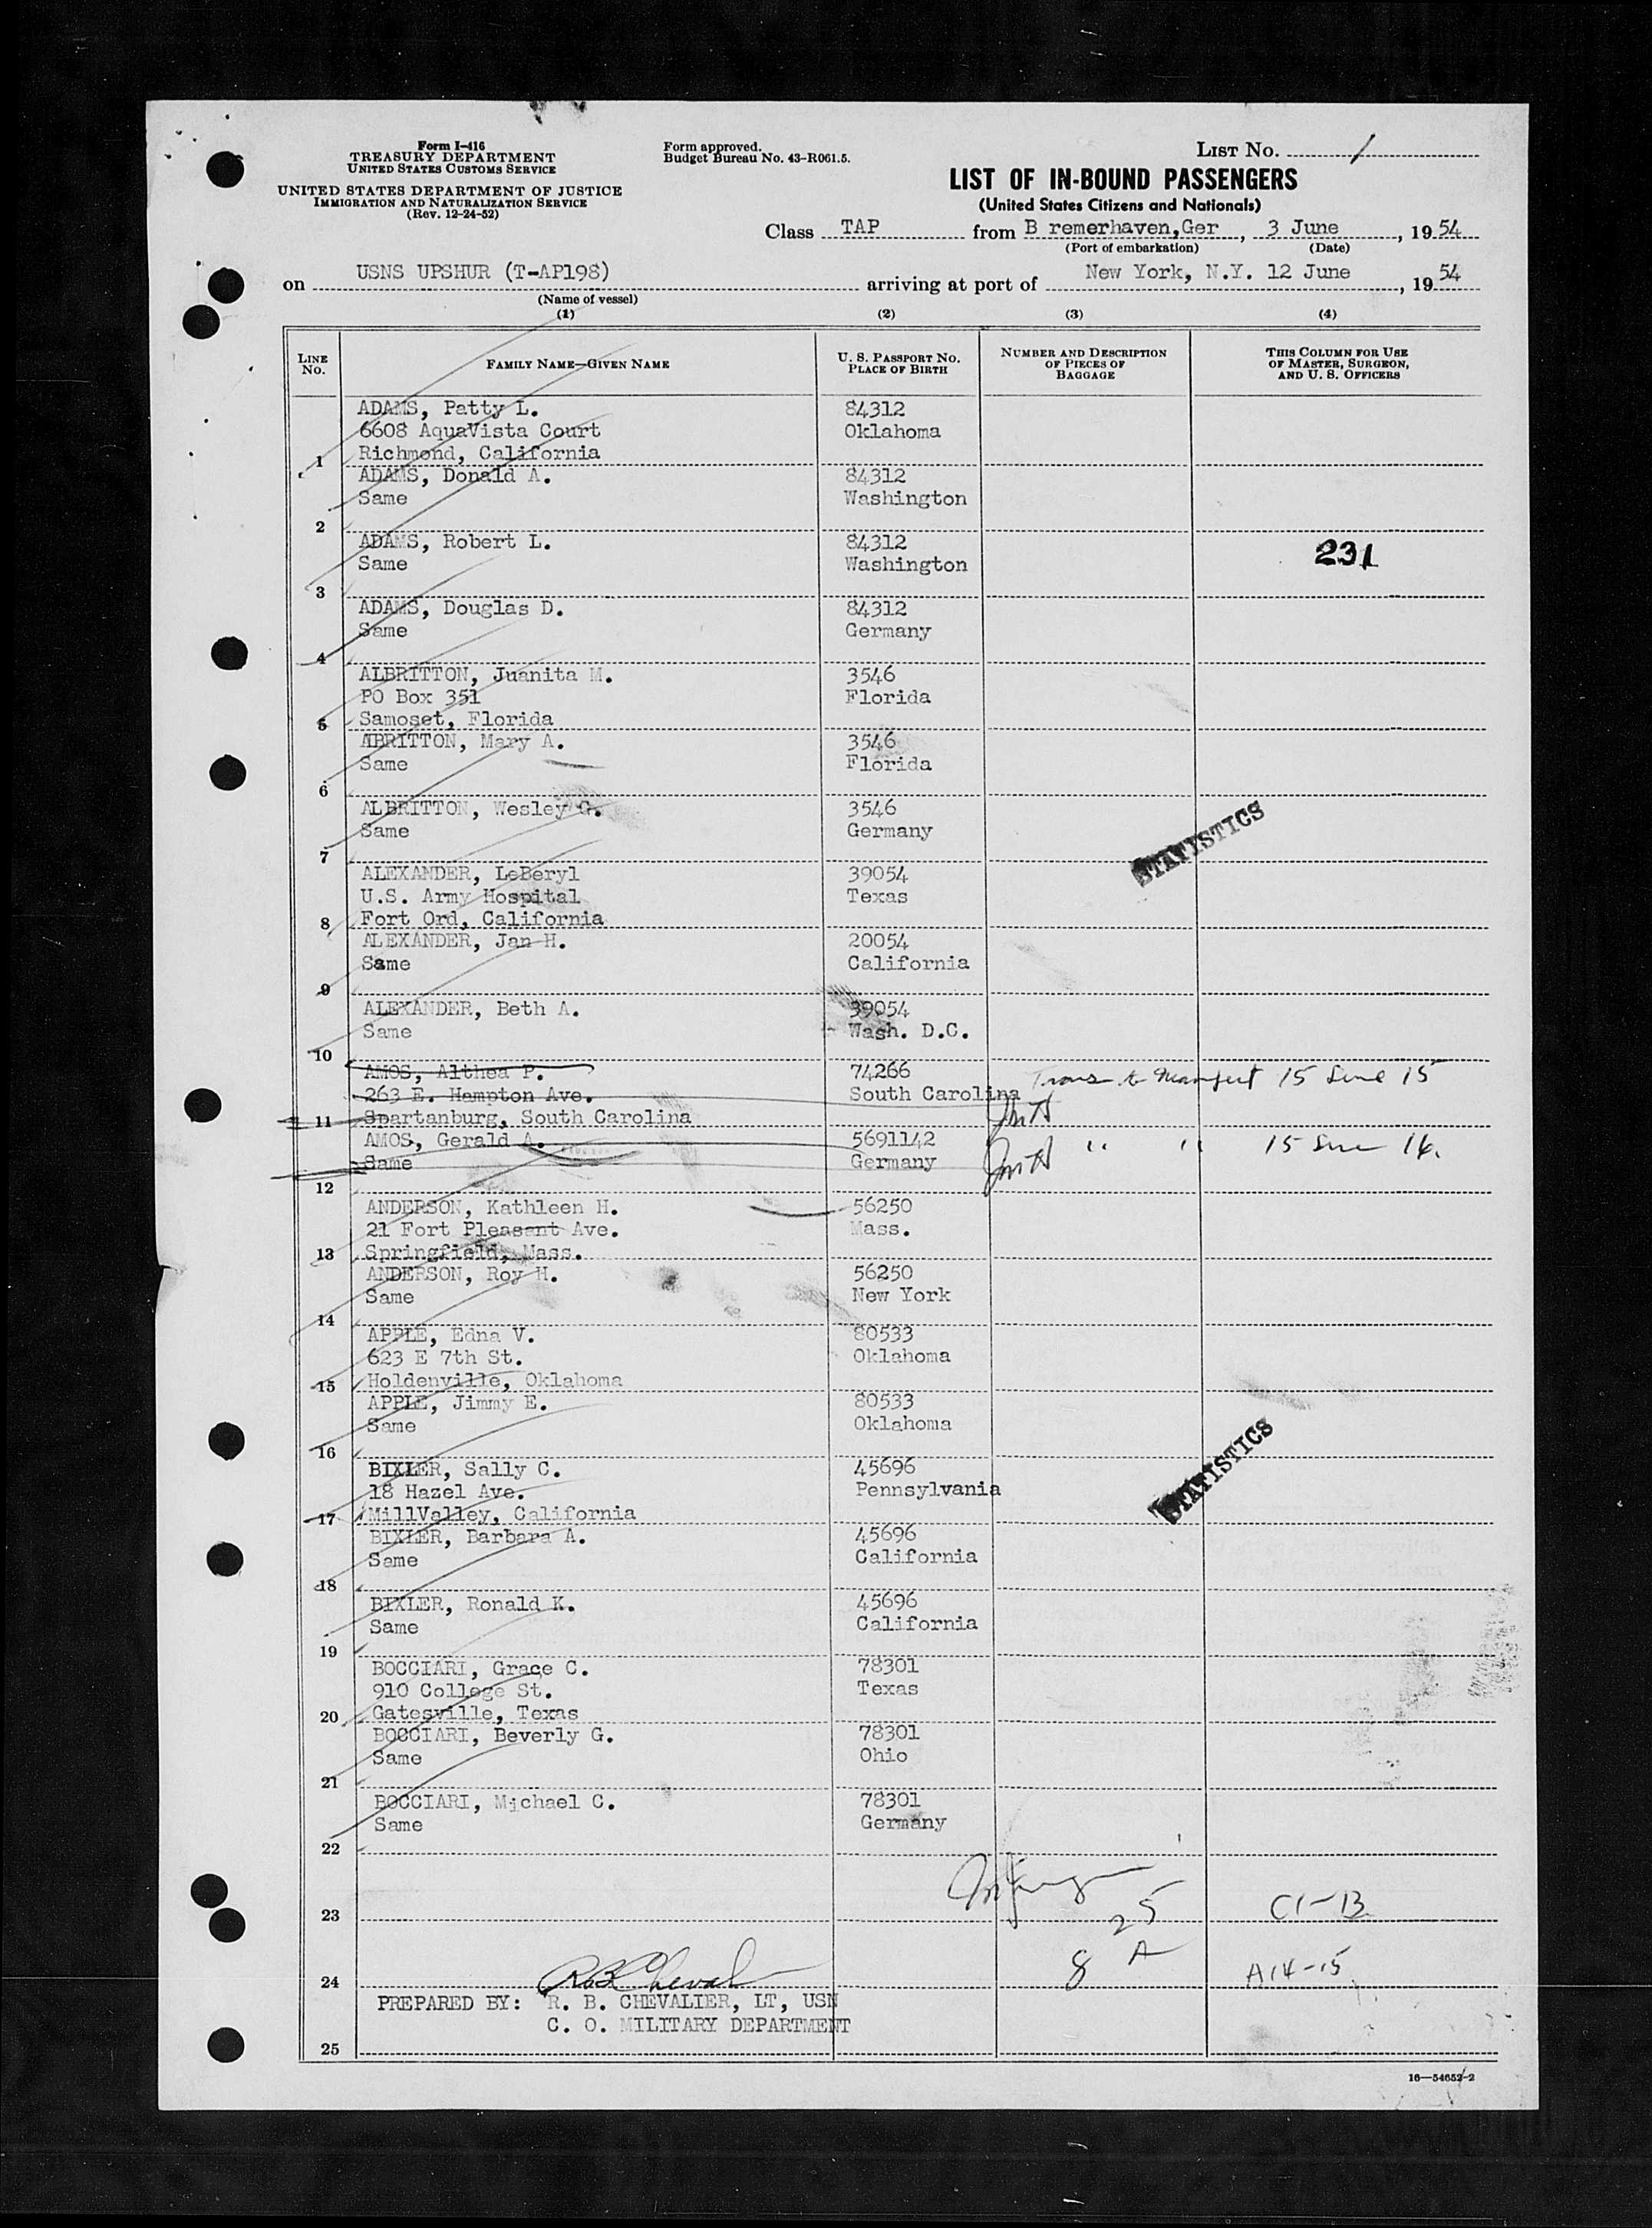 Form I-416
TREASURY DEPARTMENT
UNITED STATES CUSTOMS SERVICE
UNITED STATES DEPARTMENT OF JUSTICE
IMMIGRATION AND NATURALIZATION SERVICE
(Rev. 12-24-52)
Form approved.
Budget Bureau No. 43-R061.5.
LIST NO. 1
LIST OF IN-BOUND PASSENGERS
(United States Citizens and Nationals)
Class TAP from B remerhaven,Ger , 3 June , 1954
(Port of embarkation) (Date)
on USNS UPSHUR (T-AP198) arriving at port of New York, N.Y. 12 June , 1954
(Name of vessel)
(1) (2) (3) (4)
LINE NO. FAMILY NAME—GIVEN NAME U. S. PASSPORT NO. PLACE OF BIRTH NUMBER AND DESCRIPTION OF PIECES OF BAGGAGE THIS COLUMN FOR USE OF MASTER, SURGEON, AND U. S. OFFICERS
ADAMS, Patty L. 84312
6608 AquaVista Court Oklahoma
1 Richmond, California
ADAMS, Donald A. 84312
Same Washington
2
ADAMS, Robert L. 84312
Same Washington 231
3
ADAMS, Douglas D. 84312
Same Germany
4
ALBRITTON, Juanita M. 3546
PO Box 351 Florida
5 Samoset, Florida
ABRITTON, Mary A. 3546
Same Florida
6
ALBRITTON, Wesley G. 3546
Same Germany
STATISTICS
7
ALEXANDER, LeBeryl 39054
U.S. Army Hospital Texas
8 Fort Ord, California
ALEXANDER, Jan H. 20054
Same California
9
ALEXANDER, Beth A. 39054
Same Wash. D.C.
10
AMOS, Althea P. 74266 Trans to Manifest 15 Line 15
263 E. Hampton Ave. South Carolina
11 Spartanburg, South Carolina
AMOS, Gerald A. 5691142 " " 15 Line 14.
Same Germany
12
ANDERSON, Kathleen H. 56250
21 Fort Pleasant Ave. Mass.
13 Springfield, Mass.
ANDERSON, Roy H. 56250
Same New York
14
APPLE, Edna V. 80533
623 E 7th St. Oklahoma
15 Holdenville, Oklahoma
APPLE, Jimmy E. 80533
Same Oklahoma
16
BIXLER, Sally C. 45696
18 Hazel Ave. Pennsylvania
STATISTICS
17 MillValley, California
BIXLER, Barbara A. 45696
Same California
18
BIXLER, Ronald K. 45696
Same California
19
BOCCIARI, Grace C. 78301
910 College St. Texas
20 Gatesville, Texas
BOCCIARI, Beverly G. 78301
Same Ohio
21
BOCCIARI, Michael C. 78301
Same Germany
22
23 25 C1-13
24 8 A A14-15
PREPARED BY: R. B. CHEVALIER, LT, USN
C. O. MILITARY DEPARTMENT
25
16—54652-2